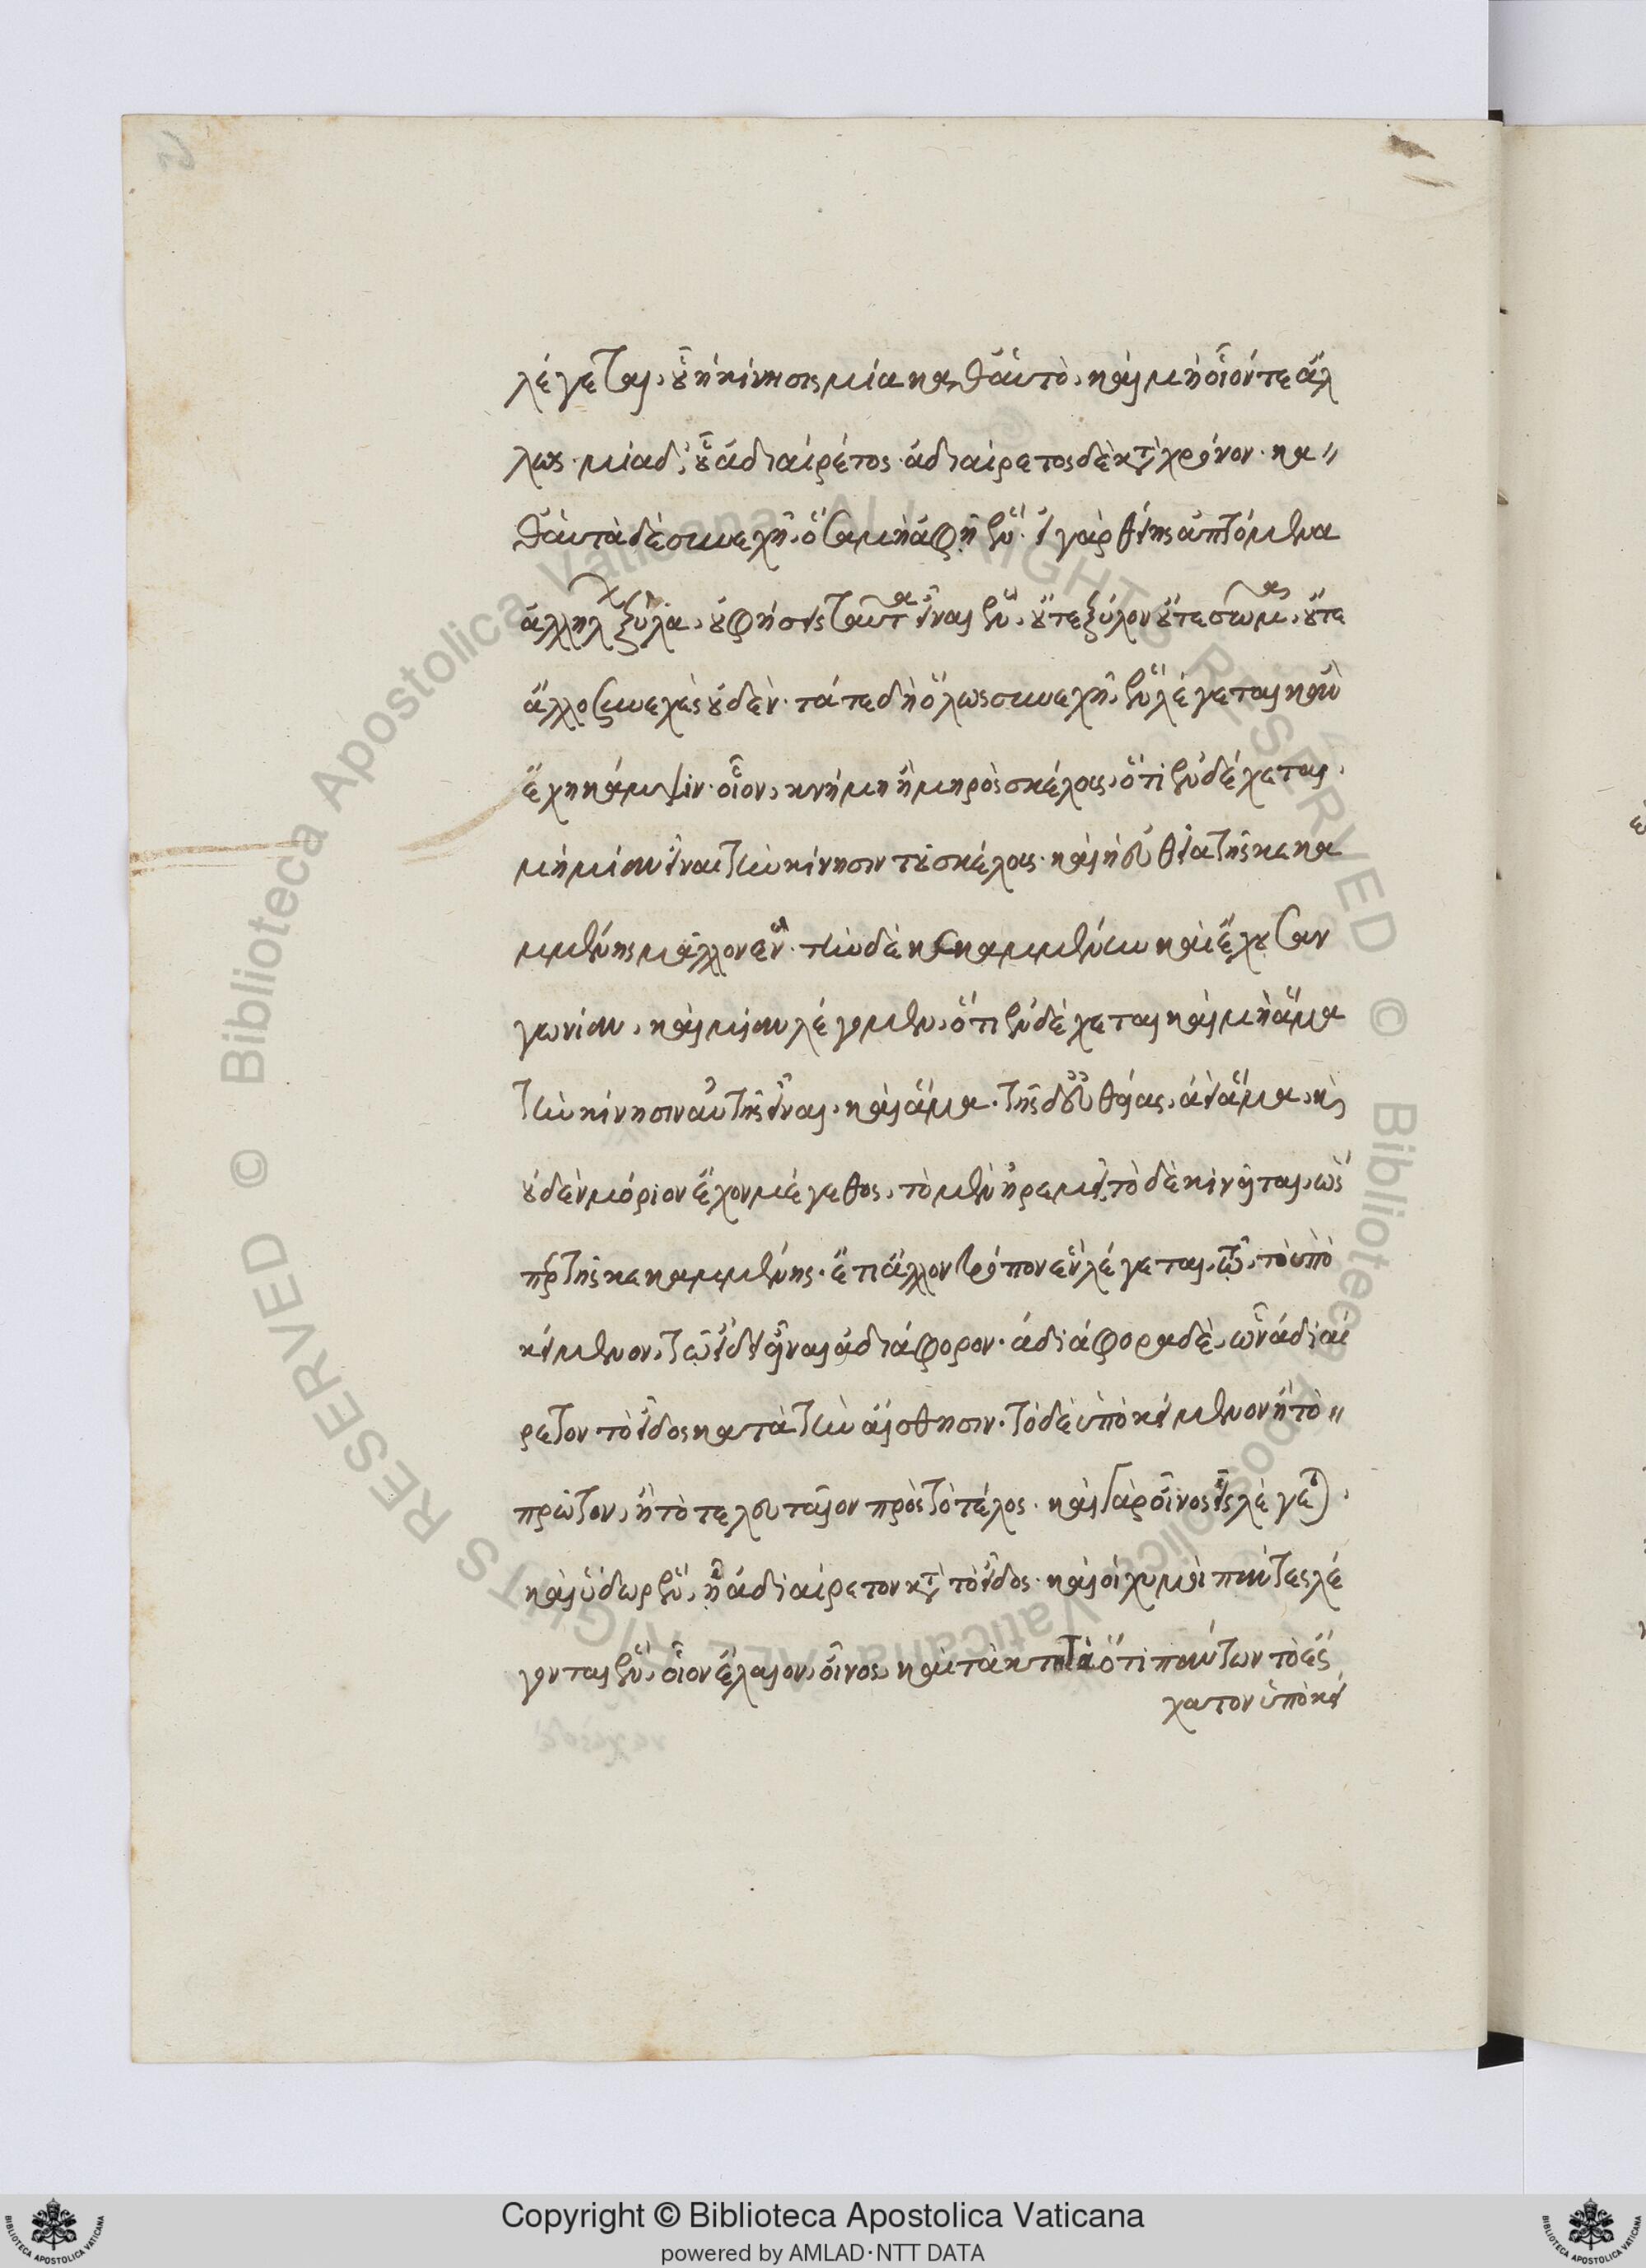 λέγεται, οὗ ἡ κίνησις μία καθ' αὑτὸ, καὶ μὴ οἷόν τε ἄλ
λως· μία δ', οὗ ἀδιαίρετος· ἀδιαίρετος δὲ κατὰ χρόνον· κα
θ' αὑτὰ δὲ συνεχῆ, ὅσα μὴ ἁφῇ ἕν· εἰ γὰρ θείης ἁπτόμενα
ἀλλήλων ξύλα, οὐ φήσεις ταῦτα εἶναι ἕν, οὔτε ξύλον οὔτε σῶμα, οὔτε
ἄλλο συνεχὲς οὐδέν· τά τε δὴ ὅλως συνεχῆ, ἓν λέγεται κἂν
ἔχῃ κάμψιν· οἷον, κνήμη ἢ μηρὸς σκέλος, ὅτι ἐνδέχεται
μὴ μίαν εἶναι τὴν κίνησιν τοῦ σκέλους· καὶ ἡ εὐθεῖα τῆς κεκα
μμένης μᾶλλον ἕν· τὴν δὲ κεκαμμένην καὶ ἔχουσαν
γωνίαν, καὶ μίαν λέγομεν, ὅτι ἐνδέχεται καὶ μὴ ἅμα
τὴν κίνησιν αὐτῆς εἶναι, καὶ ἅμα· τῆς δ' εὐθείας, ἀεὶ ἅμα, καὶ
οὐδὲν μόριον ἔχον μέγεθος, τὸ μὲν ἠρεμεῖ, τὸ δὲ κινεῖται, ὥσ
περ τῆς κεκαμμένης· ἔτι ἄλλον τρόπον ἓν λέγεται, τῷ, τὸ ὑπο
κείμενον, τῷ εἴδει εἶναι ἀδιάφορον· ἀδιάφορα δὲ, ὧν ἀδιαί
ρετον τὸ εἶδος κατὰ τὴν αἴσθησιν· τὸ δὲ ὑποκείμενον ἢ τὸ
πρῶτον, ἢ τὸ τελευταῖον πρὸς τὸ τέλος· καὶ γὰρ οἶνος εἷς λέγεται·
καὶ ὕδωρ ἕν, ᾗ ἀδιαίρετον κατὰ τὸ εἶδος· καὶ οἱ χυμοὶ πάντες λέ
γονται ἕν, οἷον ἔλαιον, οἶνος, καὶ τὰ τηκτὰ ὅτι πάντων τὸ ἔς
χατον ὑποκεί